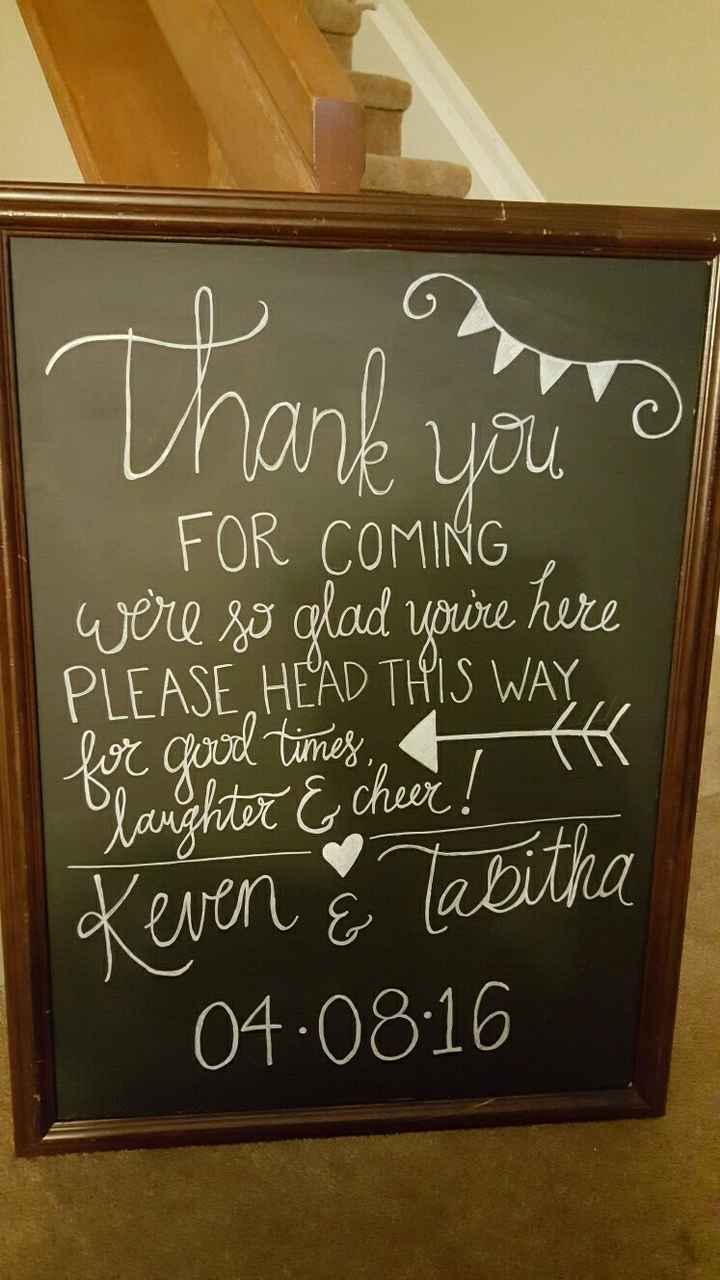 Thank you
FOR COMING
we're so glad you're here
PLEASE HEAD THIS WAY
for good times,
laughter & cheer!
Keven & Tabitha
04·08·16